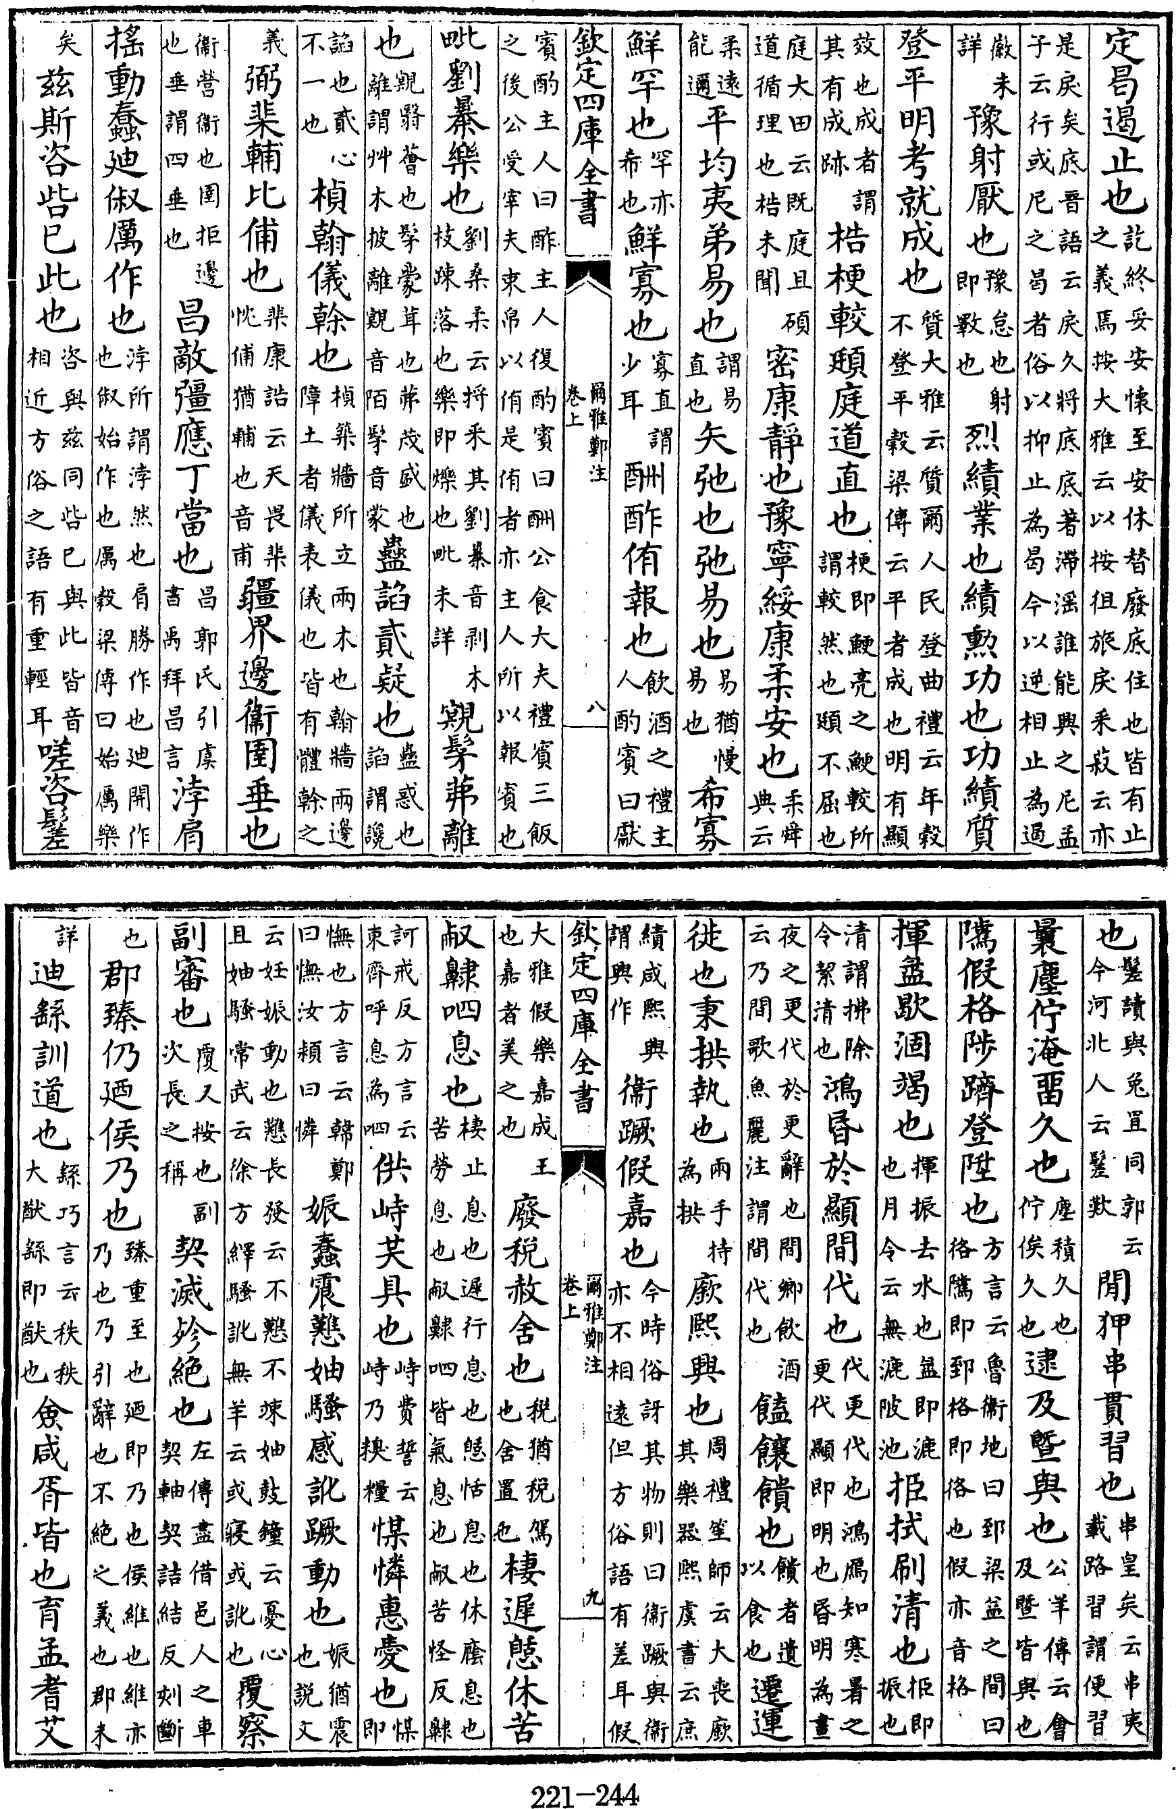 定曷遏止也訖終妥安懷至安休替廢底住也皆有止之義馬按大雅云以按徂旅戾釆菽云亦
是戾矣底晉語云戾久將底底著滯淫誰能興之尼孟子云行或尼之曷者俗以抑止為曷今以逆相止為遏
廞未詳豫射厭也豫怠也射即斁也烈績業也績勲功也功績質
登平明考就成也質大雅云質爾人民登曲禮云年糓不登平糓梁傳云平者成也明有顯
效也成者謂其有成跡梏梗較頲庭道直也梗即鯁亮之鯁較所謂較然也頲不屈也
庭大田云既庭且碩道循理也梏未聞密康靜也豫寧綏康柔安也柔舜典云
柔遠能邇平均夷弟易也謂易直也矢弛也弛易也易猶慢易也希寡
鮮罕也罕亦希也鮮寡也寡直謂少耳酬酢侑報也飲酒之禮主人酌賓曰獻
欽定四庫全書 爾雅鄭注 卷上 八
賓酌主人曰酢主人復酌賓曰酬公食大夫禮賓三飯之後公受宰夫束帛以侑是侑者亦主人所以報賓也
毗劉暴樂也劉桑柔云捋釆其劉暴音剥木枝疎落也樂即爍也毗未詳覭髳茀離
也覭翳薈也髳蒙茸也茀茂盛也離謂艸木披離覭音陌髳音蒙蠱謟貳疑也蠱惑也謟謂讒
謟也貳心不一也楨翰儀榦也楨築牆所立兩木也翰牆兩邊障土者儀表儀也皆有體榦之
義弼棐輔比俌也棐康誥云天畏棐忱俌猶輔也音甫疆界邊衞圉垂也
衞營衞也圉拒邊也垂謂四垂也昌敵彊應丁當也昌郭氏引虞書禹拜昌言浡肩
搖動蠢迪俶厲作也浡所謂浡然也肩勝作也迪開作也俶始作也厲糓梁傳曰始厲樂
矣茲斯咨呰已此也咨與茲同呰已與此皆音相近方俗之語有重輕耳嗟咨䰈
也䰈讀與兔罝同郭云今河北人云䰈歎閑狎串貫習也串皇矣云串夷載路習謂便習
曩塵佇淹畱久也塵積久也佇俟久也逮及曁與也公羊傳云會及曁皆與也
隲假格陟躋登陞也方言云魯衞地曰郅梁益之間曰㣟隲即郅格即㣟也假亦音格
揮盝歇涸竭也揮振去水也盝即漉也月令云無漉陂池拒拭刷清也拒即振也
清謂拂除令絜清也鴻昏於顯間代也代更代也鴻鴈知寒暑之更代顯即明也昏明為晝
夜之更代於更辭也間鄉飲酒云乃間歌魚麗注謂間代也饁饟饋也饋者遺以食也遷運
徙也秉拱執也兩手持為拱廞熙興也周禮笙師云大喪廞其樂器熙虞書云庶
績咸熙興謂興作衞蹶假嘉也今時俗訝其物則曰衞蹶與衞亦不相遠但方俗語有差耳假
欽定四庫全書 爾雅鄭注 卷上 九
大雅假樂嘉成王也嘉者美之也廢稅赦舍也稅猶稅駕也舍置也棲遲憩休苦
㕟齂呬息也棲止息也遲行息也憩恬息也休廕息也苦勞息也㕟齂呬皆氣息也㕟苦怪反齂
訶戒反方言云東齊呼息為呬供峙共具也峙費誓云峙乃糗糧㥌憐惠愛也㥌即
憮也方言云韓鄭曰憮汝潁曰憐娠蠢震戁妯騷感訛蹶動也娠猶震也說文
云妊娠動也戁長發云不戁不竦妯鼓鐘云憂心且妯騷常武云徐方繹騷訛無羊云或寢或訛也覆察
副審也覆又按也副次長之稱契滅殄絕也左傳盡借邑人之車契軸契詰結反刻斷
也郡臻仍廼侯乃也臻重至也廼即乃也侯維也維亦乃也乃引辭也不絕之義也郡未
詳迪繇訓道也繇巧言云秩秩大猷繇即猷也僉咸胥皆也育孟耆艾
221-244